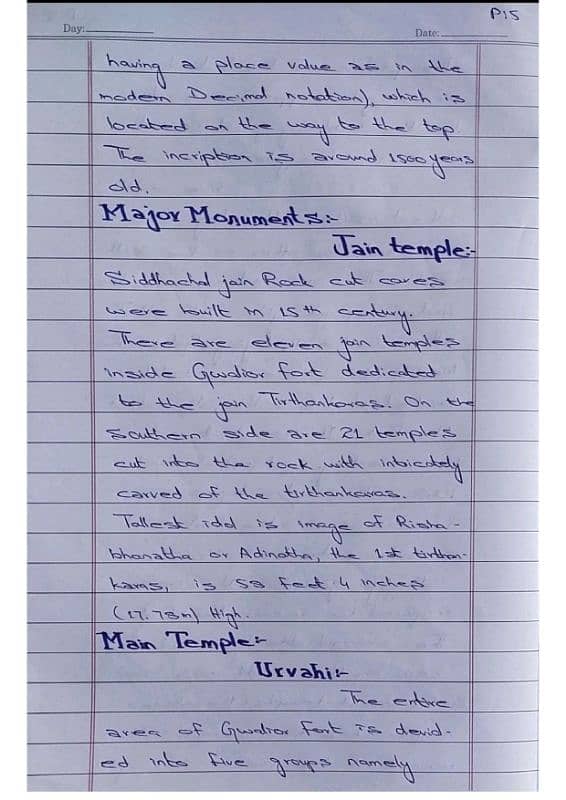 P15
Day:
Date:
having a place value as in the
modern Decimal notation), which is
located on the way to the top.
The incription is around 1500 years
old.
Major Monuments:-
Jain temple:-
Siddhachal jain Rock cut caves
were built in 15th century.
There are eleven jain temples
inside Gwalior fort dedicated
to the jain Tirthankaras. On the
Southern side are 21 temples
cut into the rock with intricately
carved of the tirthankaras.
Tallest idol is image of Risha-
bhanatha or Adinatha, the 1st tirthan-
karas, is 58 feet 4 inches
(17.78m) High.
Main Temple:-
Urvahi:-
The entire
area of Gwalior Fort is devid-
ed into five groups namely